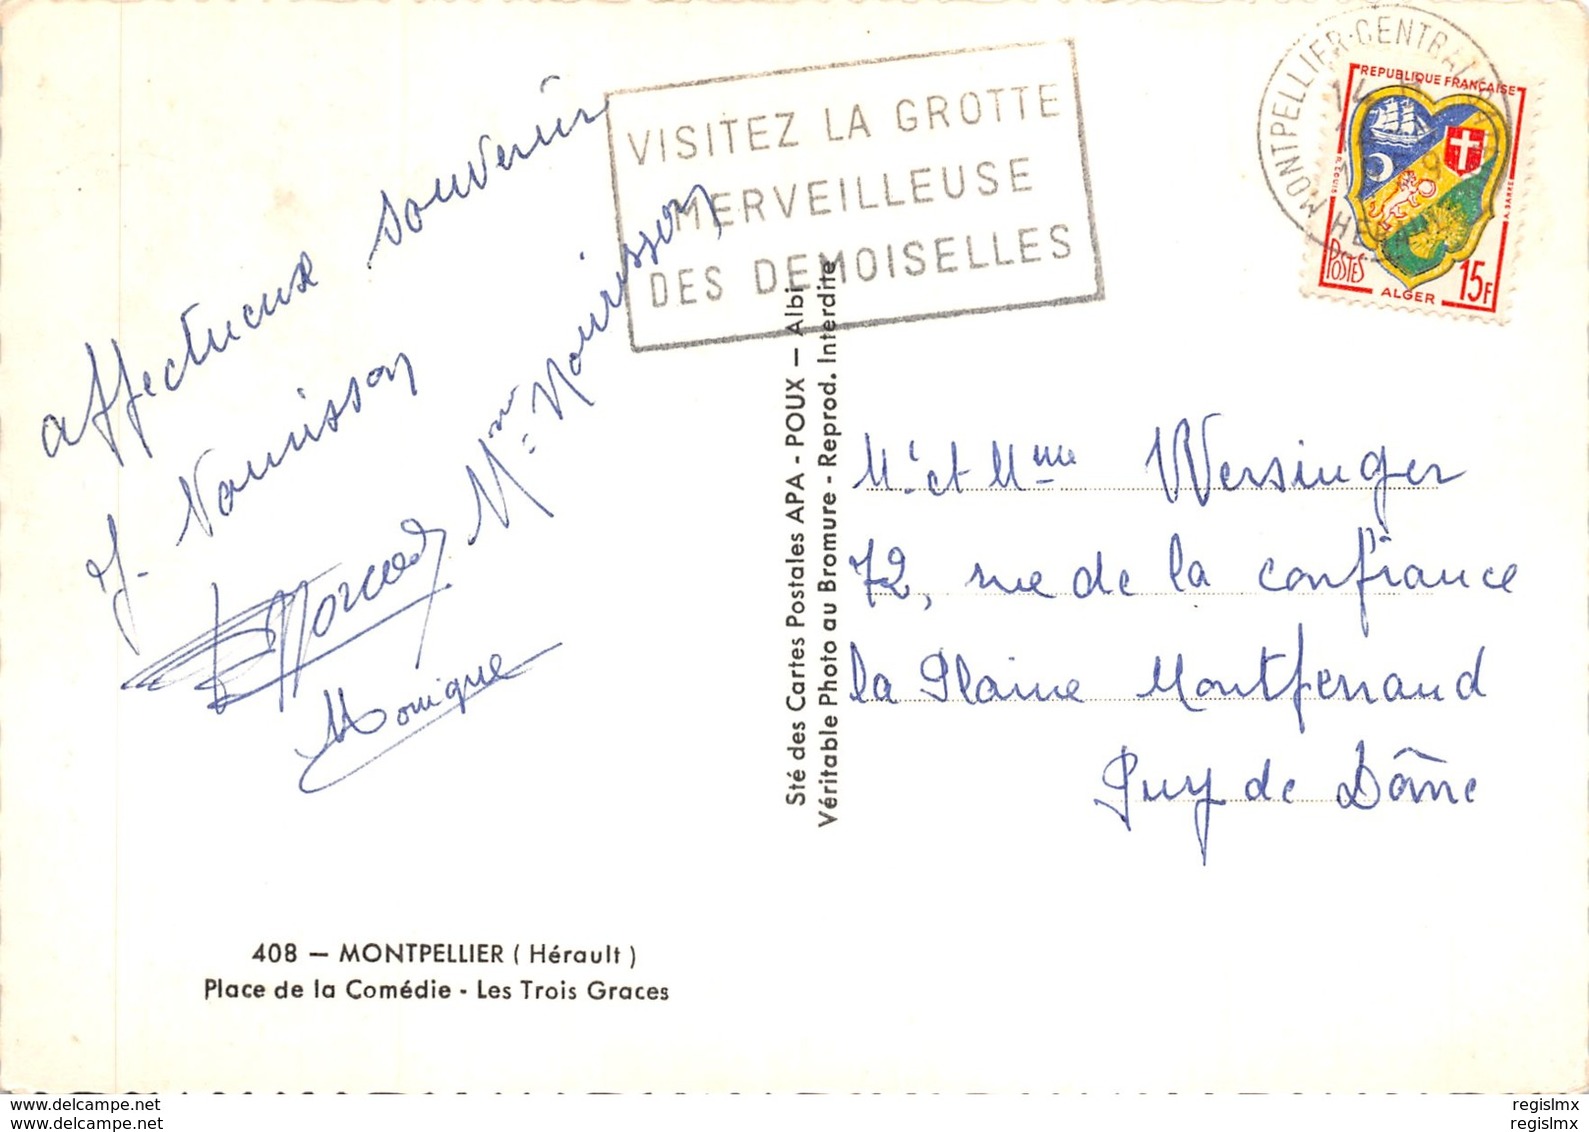 affectueux souvenir
J. Nourrisson
Mme Nourrisson
Monique
VISITEZ LA GROTTE
MERVEILLEUSE
DES DEMOISELLES
MONTPELLIER-CENTRAL
REPUBLIQUE FRANÇAISE
POSTES
ALGER
15F
Sté des Cartes Postales APA - POUX — Albi
Véritable Photo au Bromure - Reprod. Interdite
Mr et Mme Wersinger
72, rue de la confiance
la Plaine Montferrand
Puy de Dôme
408 — MONTPELLIER ( Hérault )
Place de la Comédie - Les Trois Graces
www.delcampe.net
www.delcampe.net
regislmx
regislmx